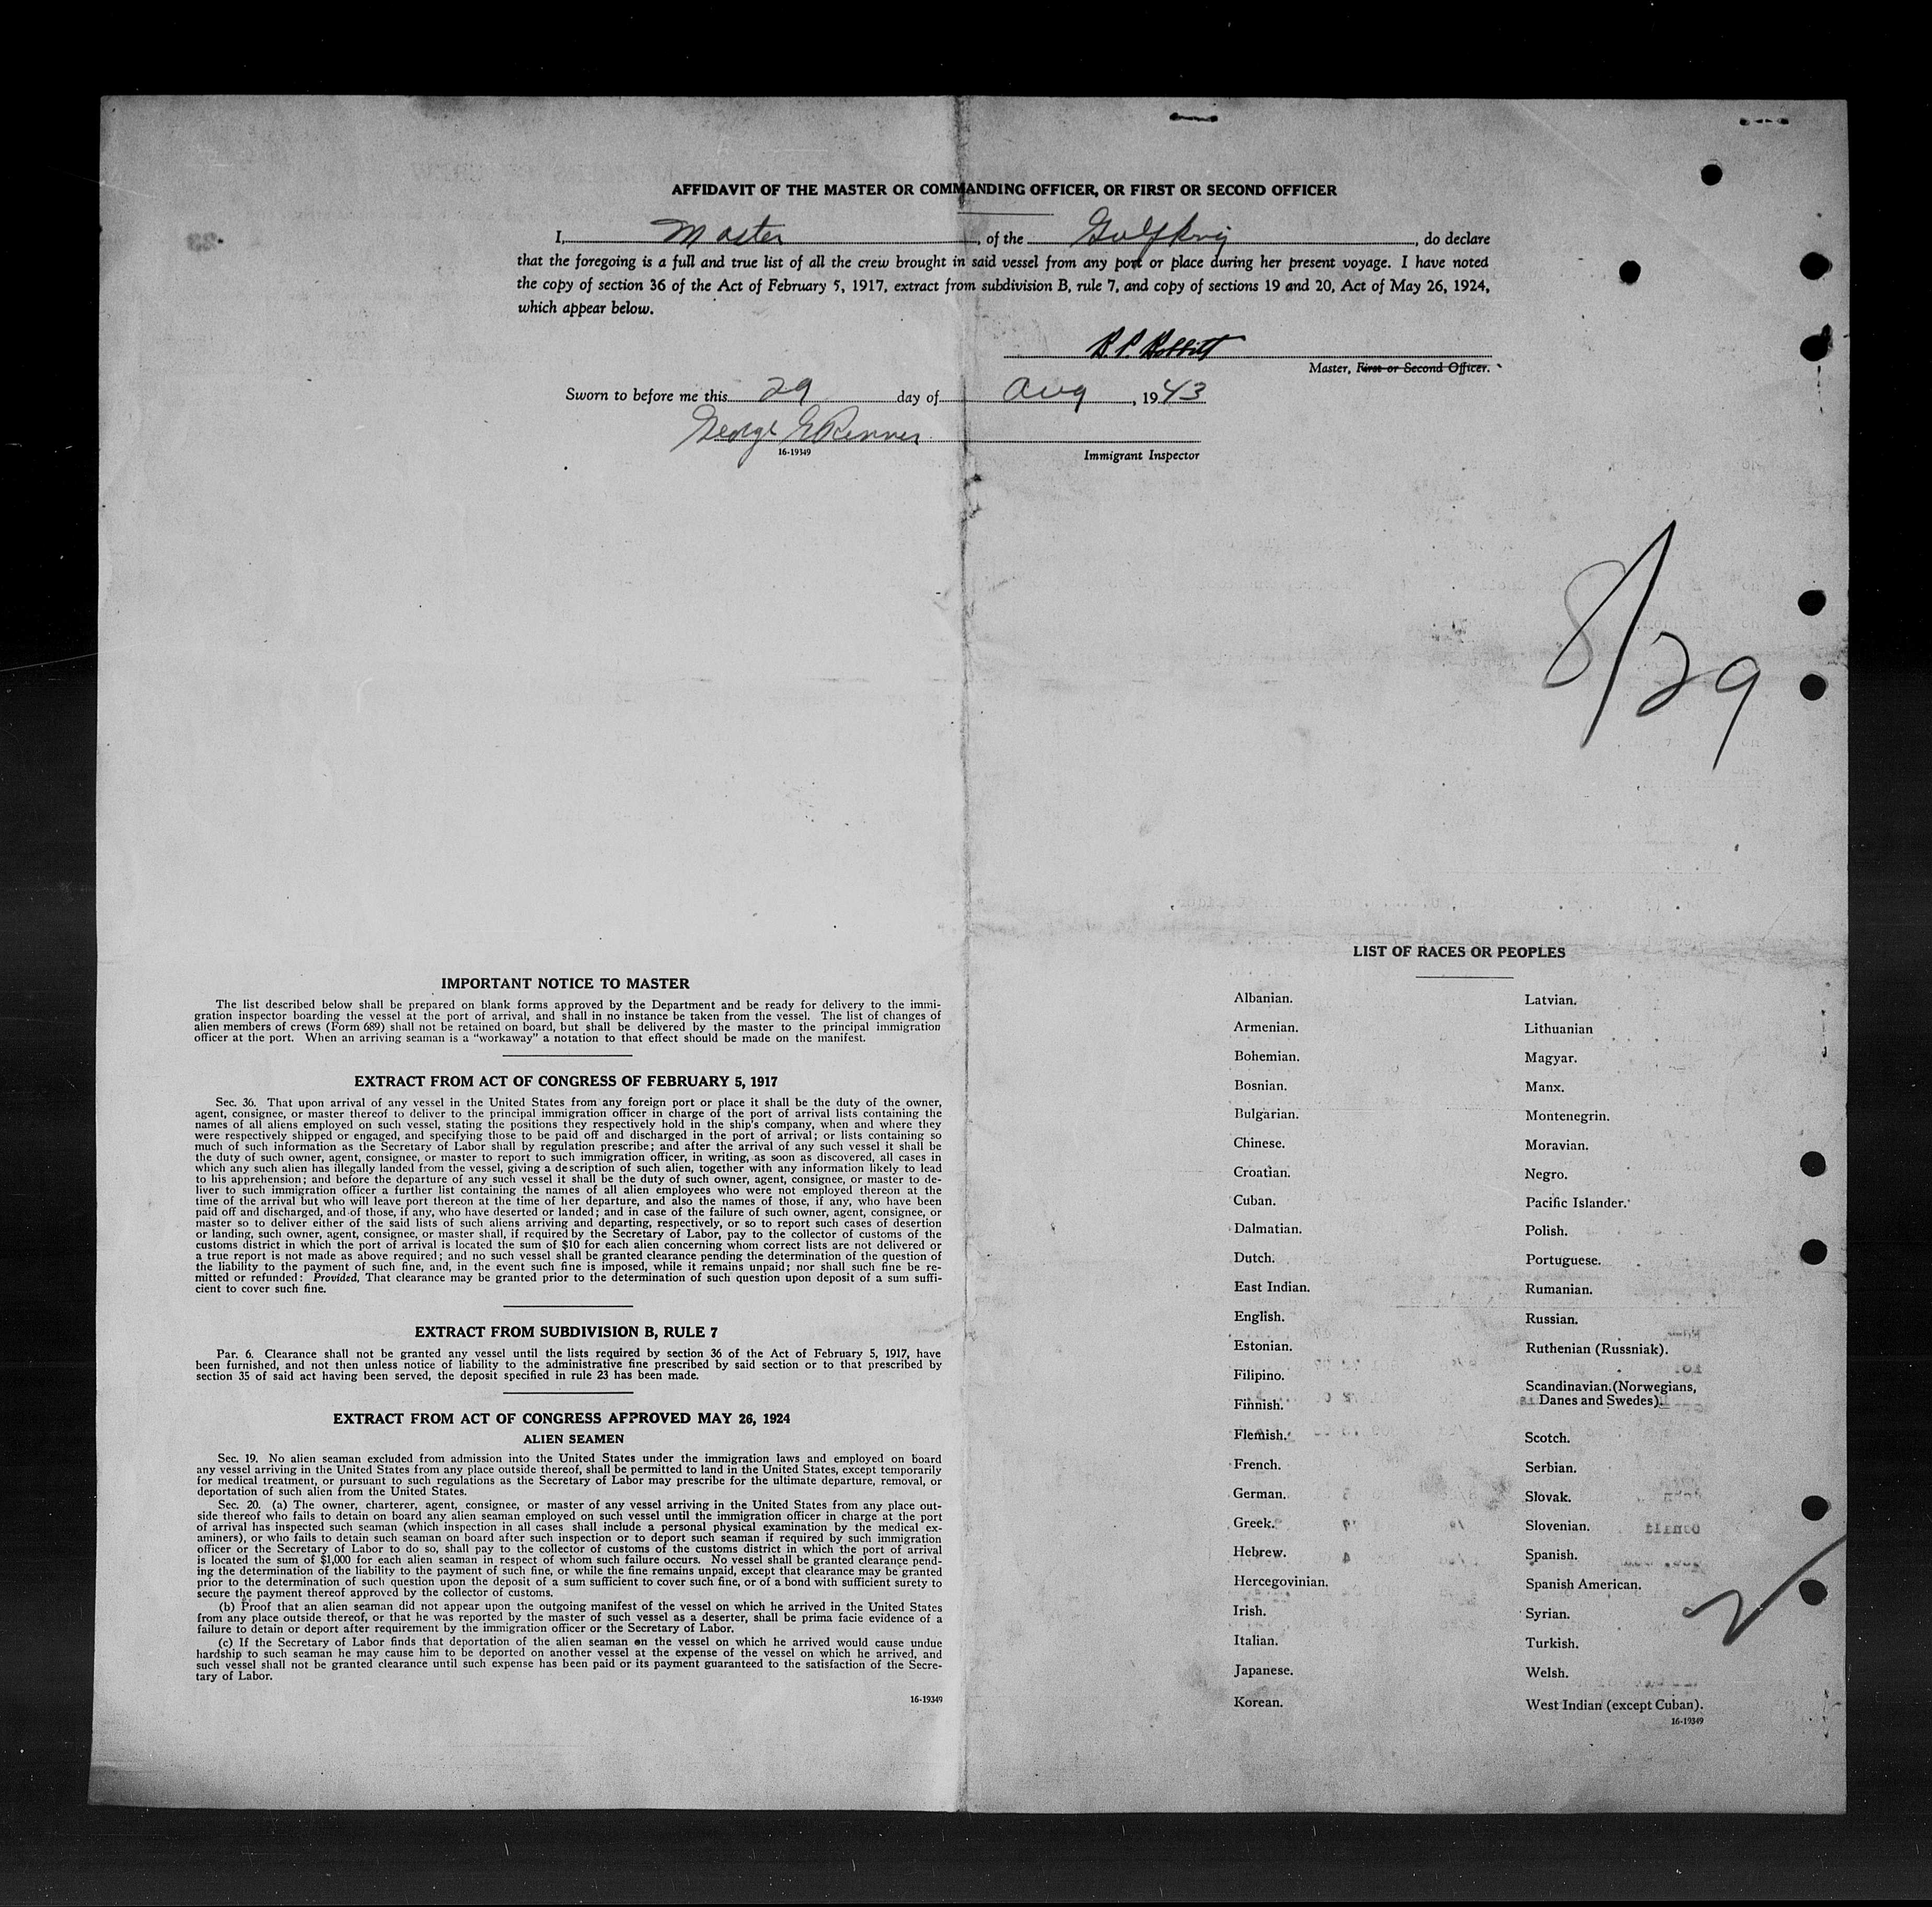 AFFIDAVIT OF THE MASTER OR COMMANDING OFFICER, OR FIRST OR SECOND OFFICER
I, Master, of the Gulfking, do declare
that the foregoing is a full and true list of all the crew brought in said vessel from any port or place during her present voyage. I have noted
the copy of section 36 of the Act of February 5, 1917, extract from subdivision B, rule 7, and copy of sections 19 and 20, Act of May 26, 1924,
which appear below.
Master, First or Second Officer.
Sworn to before me this 29 day of Aug, 1943
George E Renner
16-19349
Immigrant Inspector
8/29
IMPORTANT NOTICE TO MASTER
The list described below shall be prepared on blank forms approved by the Department and be ready for delivery to the immi-
gration inspector boarding the vessel at the port of arrival, and shall in no instance be taken from the vessel. The list of changes of
alien members of crews (Form 689) shall not be retained on board, but shall be delivered by the master to the principal immigration
officer at the port. When an arriving seaman is a "workaway" a notation to that effect should be made on the manifest.
EXTRACT FROM ACT OF CONGRESS OF FEBRUARY 5, 1917
Sec. 36. That upon arrival of any vessel in the United States from any foreign port or place it shall be the duty of the owner,
agent, consignee, or master thereof to deliver to the principal immigration officer in charge of the port of arrival lists containing the
names of all aliens employed on such vessel, stating the positions they respectively hold in the ship's company, when and where they
were respectively shipped or engaged, and specifying those to be paid off and discharged in the port of arrival; or lists containing so
much of such information as the Secretary of Labor shall by regulation prescribe; and after the arrival of any such vessel it shall be
the duty of such owner, agent, consignee, or master to report to such immigration officer, in writing, as soon as discovered, all cases in
which any such alien has illegally landed from the vessel, giving a description of such alien, together with any information likely to lead
to his apprehension; and before the departure of any such vessel it shall be the duty of such owner, agent, consignee, or master to de-
liver to such immigration officer a further list containing the names of all alien employees who were not employed thereon at the
time of the arrival but who will leave port thereon at the time of her departure, and also the names of those, if any, who have been
paid off and discharged, and of those, if any, who have deserted or landed; and in case of the failure of such owner, agent, consignee, or
master so to deliver either of the said lists of such aliens arriving and departing, respectively, or so to report such cases of desertion
or landing, such owner, agent, consignee, or master shall, if required by the Secretary of Labor, pay to the collector of customs of the
customs district in which the port of arrival is located the sum of $10 for each alien concerning whom correct lists are not delivered or
a true report is not made as above required; and no such vessel shall be granted clearance pending the determination of the question of
the liability to the payment of such fine, and, in the event such fine is imposed, while it remains unpaid; nor shall such fine be re-
mitted or refunded: Provided, That clearance may be granted prior to the determination of such question upon deposit of a sum suffi-
cient to cover such fine.
EXTRACT FROM SUBDIVISION B, RULE 7
Par. 6. Clearance shall not be granted any vessel until the lists required by section 36 of the Act of February 5, 1917, have
been furnished, and not then unless notice of liability to the administrative fine prescribed by said section or to that prescribed by
section 35 of said act having been served, the deposit specified in rule 23 has been made.
EXTRACT FROM ACT OF CONGRESS APPROVED MAY 26, 1924
ALIEN SEAMEN
Sec. 19. No alien seaman excluded from admission into the United States under the immigration laws and employed on board
any vessel arriving in the United States from any place outside thereof, shall be permitted to land in the United States, except temporarily
for medical treatment, or pursuant to such regulations as the Secretary of Labor may prescribe for the ultimate departure, removal, or
deportation of such alien from the United States.
Sec. 20. (a) The owner, charterer, agent, consignee, or master of any vessel arriving in the United States from any place out-
side thereof who fails to detain on board any alien seaman employed on such vessel until the immigration officer in charge at the port
of arrival has inspected such seaman (which inspection in all cases shall include a personal physical examination by the medical ex-
aminers), or who fails to detain such seaman on board after such inspection or to deport such seaman if required by such immigration
officer or the Secretary of Labor to do so, shall pay to the collector of customs of the customs district in which the port of arrival
is located the sum of $1,000 for each alien seaman in respect of whom such failure occurs. No vessel shall be granted clearance pend-
ing the determination of the liability to the payment of such fine, or while the fine remains unpaid, except that clearance may be granted
prior to the determination of such question upon the deposit of a sum sufficient to cover such fine, or of a bond with sufficient surety to
secure the payment thereof approved by the collector of customs.
(b) Proof that an alien seaman did not appear upon the outgoing manifest of the vessel on which he arrived in the United States
from any place outside thereof, or that he was reported by the master of such vessel as a deserter, shall be prima facie evidence of a
failure to detain or deport after requirement by the immigration officer or the Secretary of Labor.
(c) If the Secretary of Labor finds that deportation of the alien seaman on the vessel on which he arrived would cause undue
hardship to such seaman he may cause him to be deported on another vessel at the expense of the vessel on which he arrived, and
such vessel shall not be granted clearance until such expense has been paid or its payment guaranteed to the satisfaction of the Secre-
tary of Labor.
16-19349
LIST OF RACES OR PEOPLES
Albanian.
Armenian.
Bohemian.
Bosnian.
Bulgarian.
Chinese.
Croatian.
Cuban.
Dalmatian.
Dutch.
East Indian.
English.
Estonian.
Filipino.
Finnish.
Flemish.
French.
German.
Greek.
Hebrew.
Hercegovinian.
Irish.
Italian.
Japanese.
Korean.
Latvian.
Lithuanian
Magyar.
Manx.
Montenegrin.
Moravian.
Negro.
Pacific Islander.
Polish.
Portuguese.
Rumanian.
Russian.
Ruthenian (Russniak).
Scandinavian (Norwegians,
Danes and Swedes).
Scotch.
Serbian.
Slovak.
Slovenian.
Spanish.
Spanish American.
Syrian.
Turkish.
Welsh.
West Indian (except Cuban).
16-19349